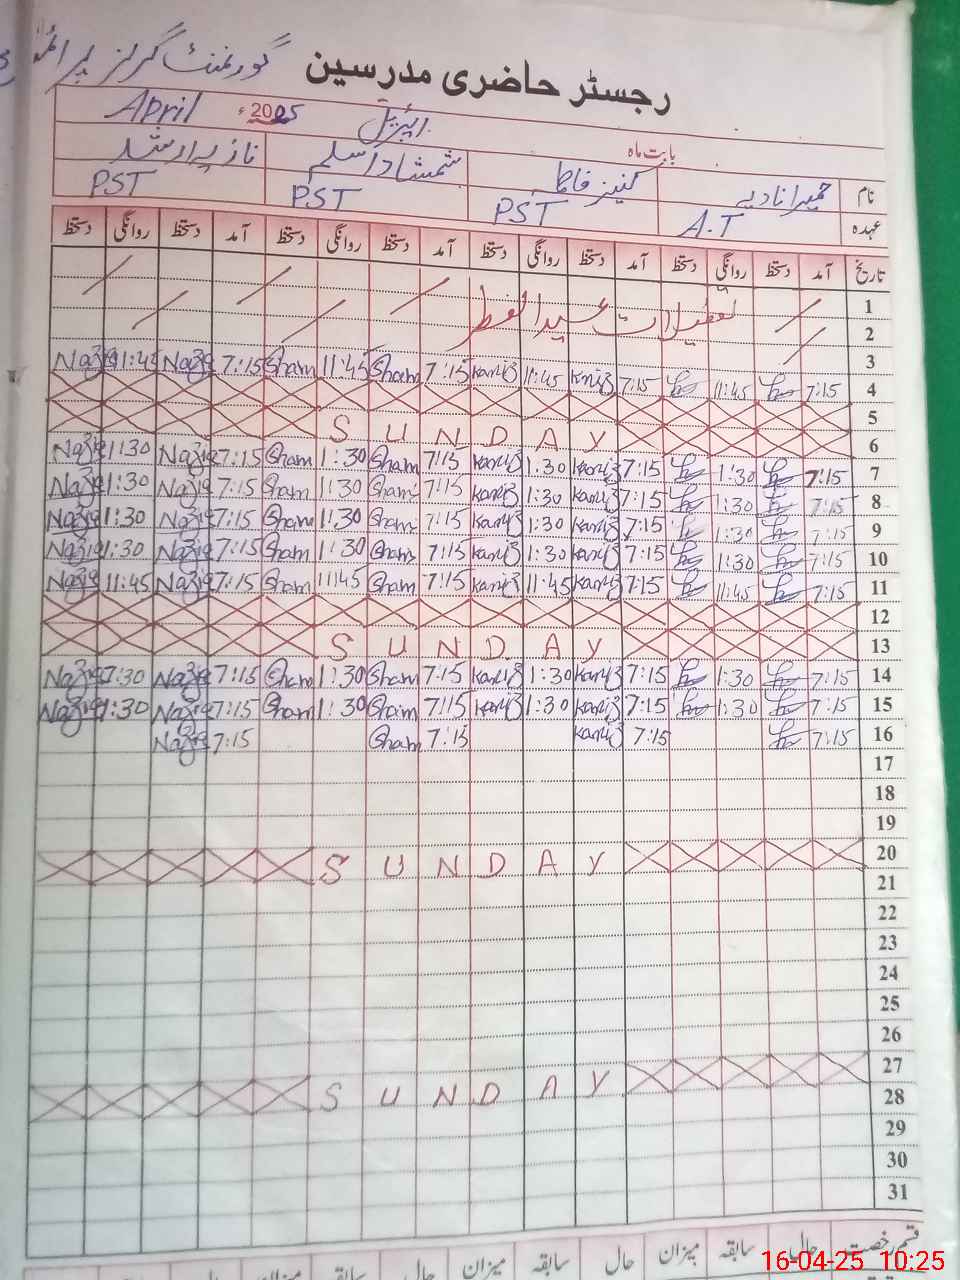 گورنمنٹ گرلز پرائمری
رجسٹر حاضری مدرسین
بابت ماہ اپریل 2025ء April
نام حمیرا نادیہ کنیز فاطمہ شمشاد اسلم نازیہ ارشد
عہدہ A.T PST PST PST
تاریخ آمد دستخط روانگی دستخط آمد دستخط روانگی دستخط آمد دستخط روانگی دستخط آمد دستخط روانگی دستخط
1
تعطیلات عیدالفطر
2
3
4 7:15 11:45 7:15 Kaniz 11:45 Kaniz 7:15 Sham 11:45 Sham 7:15 Nazia 11:45 Nazia
5
6 SUNDAY
7 7:15 1:30 7:15 Kaniz 1:30 Kaniz 7:15 Sham 1:30 Sham 7:15 Nazia 1:30 Nazia
8 7:15 1:30 7:15 Kaniz 1:30 Kaniz 7:15 Sham 1:30 Sham 7:15 Nazia 1:30 Nazia
9 7:15 1:30 7:15 Kaniz 1:30 Kaniz 7:15 Sham 1:30 Sham 7:15 Nazia 1:30 Nazia
10 7:15 1:30 7:15 Kaniz 1:30 Kaniz 7:15 Sham 1:30 Sham 7:15 Nazia 1:30 Nazia
11 7:15 11:45 7:15 Kaniz 11:45 Kaniz 7:15 Sham 11:45 Sham 7:15 Nazia 11:45 Nazia
12
13 SUNDAY
14 7:15 1:30 7:15 Kaniz 1:30 Kaniz 7:15 Sham 1:30 Sham 7:15 Nazia 7:30 Nazia
15 7:15 1:30 7:15 Kaniz 1:30 Kaniz 7:15 Sham 1:30 Sham 7:15 Nazia 1:30 Nazia
16 7:15 7:15 Kaniz 7:15 Sham 7:15 Nazia
17
18
19
20 SUNDAY
21
22
23
24
25
26
27 SUNDAY
28
29
30
31
قسم رخصت حال سابقہ میزان حال سابقہ میزان حال سابقہ میزان حال
16-04-25 10:25